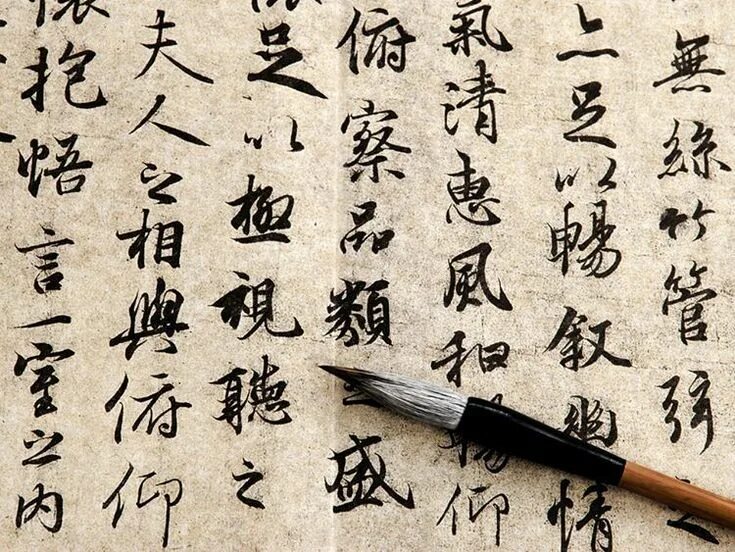 無絲竹管弦之
亦足以暢叙幽情
氣清惠風和暢仰
俯察品類之盛
懷足以極視聽之
夫人之相與俯仰
懷抱悟言一室之内